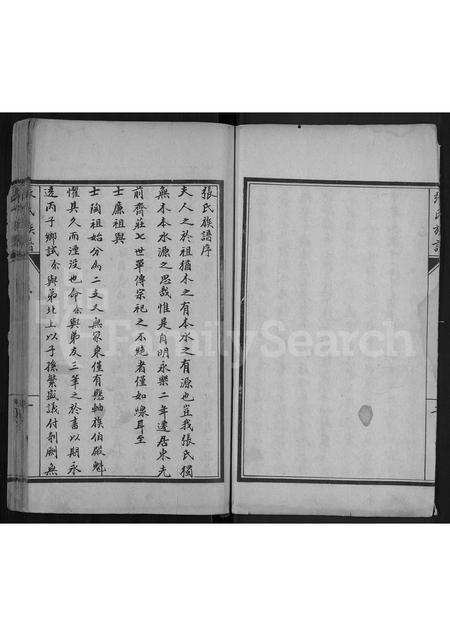 張氏族譜序
夫人之於祖猶木之有本水之有源也豈我張氏獨
無木本水源之思哉惟是自明永樂二年遷居東光
前齊莊七世單傳宗祀之不絕者僅如線耳至
士廉祖與
士陶祖始分為二支又無家乘僅有懸軸族伯殿魁
懼其久而湮沒也命余與弟友三筆之於書以期永
遠丙子鄉試余與弟北上以子孫繁盛議付剞劂無
張氏族譜
FamilySearch